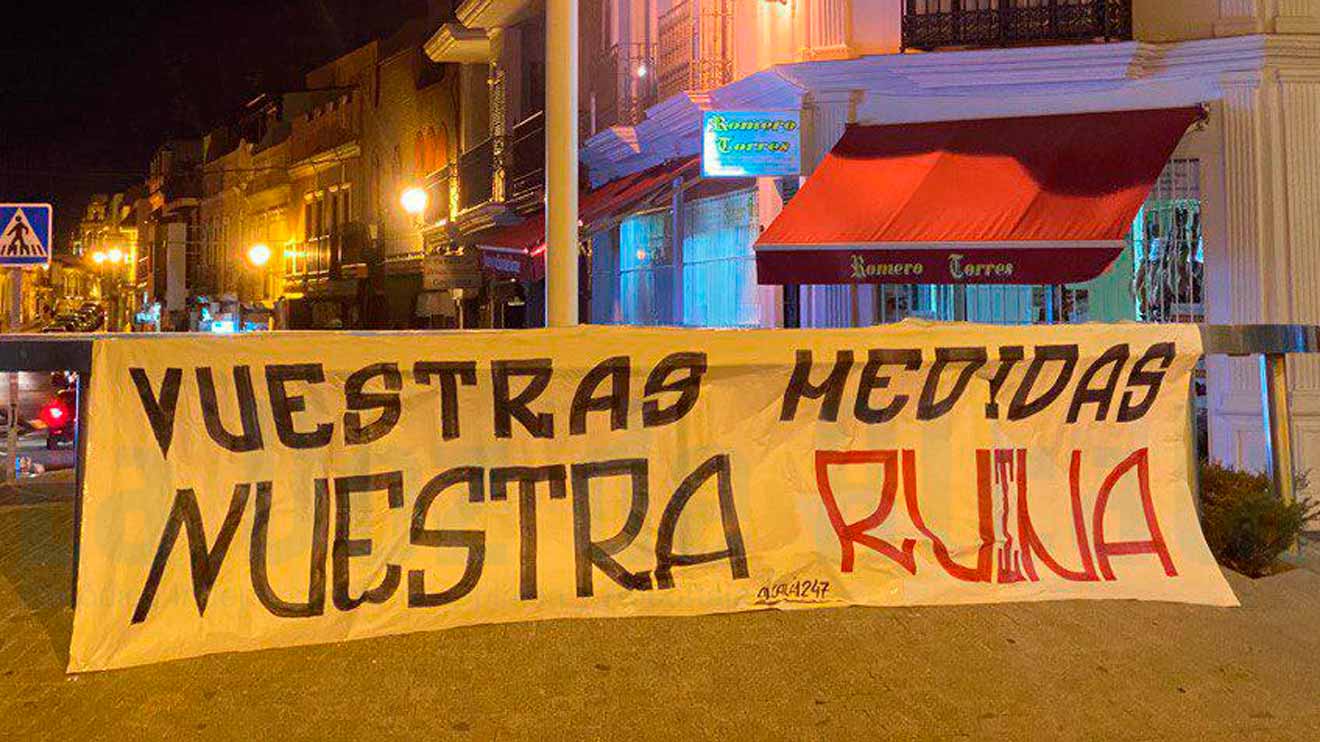 Romero
Torres
Romero Torres
VUESTRAS MEDIDAS
NUESTRA RUINA
ALCALÁ247